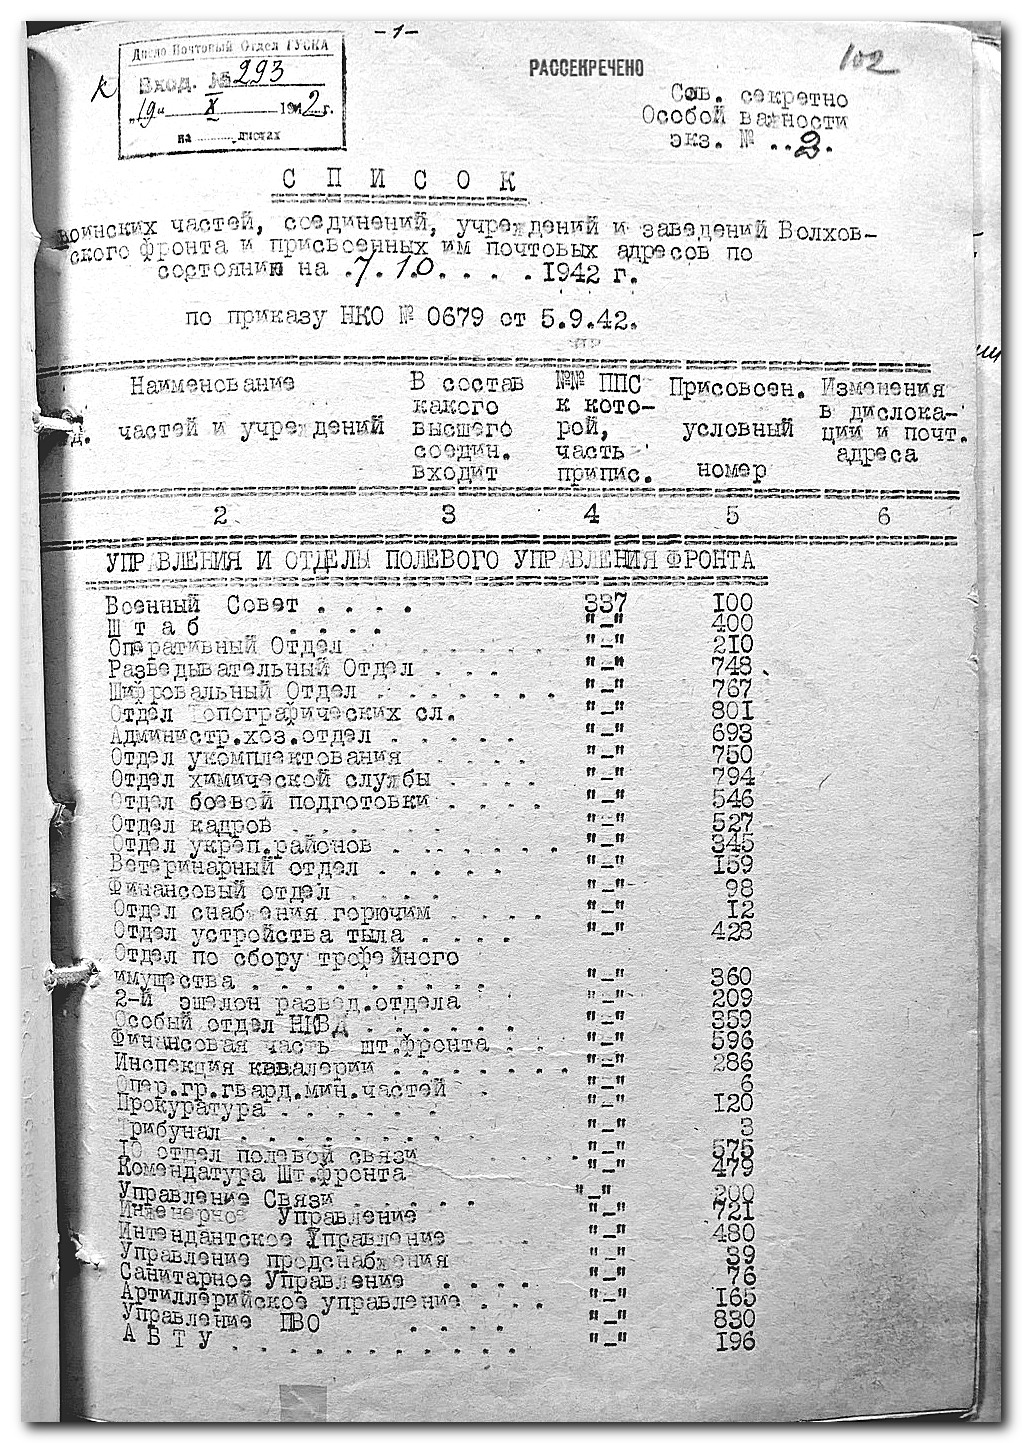 -1-
102
Дисло Почтовый Отдел ГУСКА
Вход. № 293
"19" X 1942 г.
на ......... листах
К
РАССЕКРЕЧЕНО
Сов. секретно
Особой важности
экз. № ..2.
С П И С О К
воинских частей, соединений, учреждений и заведений Волхов-
ского фронта и присвоенных им почтовых адресов по
состоянию на .7.10. . . . .1942 г.
по приказу НКО № 0679 от 5.9.42.
Наименование В состав №№ ППС Присовоен. Изменения
какого к кото- в дислока-
д. частей и учреждений высшего рой, условный ции и почт.
соедин. часть адреса
входит припис. номер
2 3 4 5 6
УПРАВЛЕНИЯ И ОТДЕЛЫ ПОЛЕВОГО УПРАВЛЕНИЯ ФРОНТА
Военный Совет . . . . 337 100
Ш т а б . . . . "-" 400
Оперативный Отдел . . . . . . "-" 210
Разведывательный Отдел . . . "-" 748
Шифровальный Отдел . . . . . . . "-" 767
Отдел Топографических сл. "-" 801
Администр.хоз.отдел . . . . . "-" 693
Отдел укомплектования . . . . "-" 750
Отдел химической службы . . . . "-" 794
Отдел боевой подготовки . . . . "-" 546
Отдел кадров . . . . . . "-" 527
Отдел укреп.районов . . . . . . "-" 345
Ветеринарный отдел . . . . . "-" 159
Финансовый отдел . . . . . "-" 98
Отдел снабжения горючим . . . . "-" 12
Отдел устройства тыла . . . . "-" 428
Отдел по сбору трофейного
имущества . . . . . . . . . "-" 360
2-й эшелон развед.отдела "-" 209
Особый отдел НКВД . . . . . . "-" 359
Финансовая часть шт.фронта . . "-" 596
Инспекция кавалерии . . . . . . . "-" 286
Опер.гр.гвард.мин.частей . "-" 6
Прокуратура . . . . . . "-" 120
Трибунал . . . . . . . . "-" 3
10 отдел полевой связи . . . "-" 575
Комендатура Шт.фронта "-" 479
Управление Связи . . . . . "-" 200
Инженерное Управление "-" 721
Интендантское Управление "-" 480
Управление продснабжения "-" 39
Санитарное Управление . . . . "-" 76
Артиллерийское управление . . . "-" 165
Управление ПВО . . . . "-" 830
А Б Т У . . . . . . . . . . . "-" 196